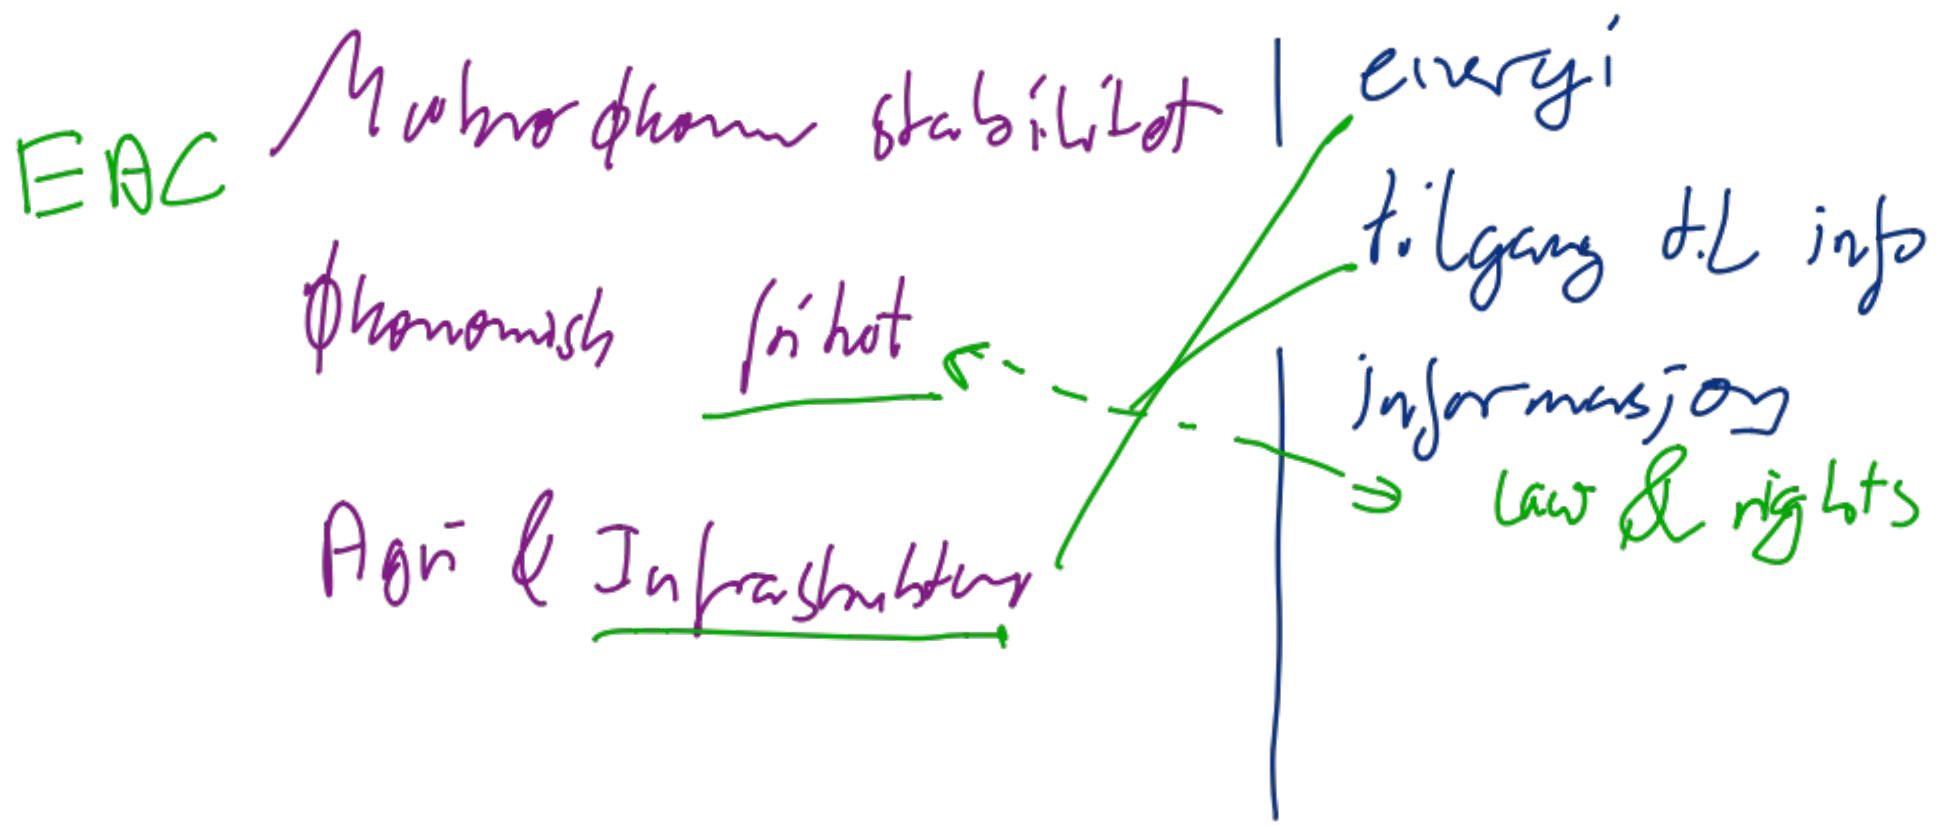 EAC
Makroøkonom stabilitet
Økonomisk frihet
Agri & Infrastruktur
energi
tilgang til info
informasjon
law & rights